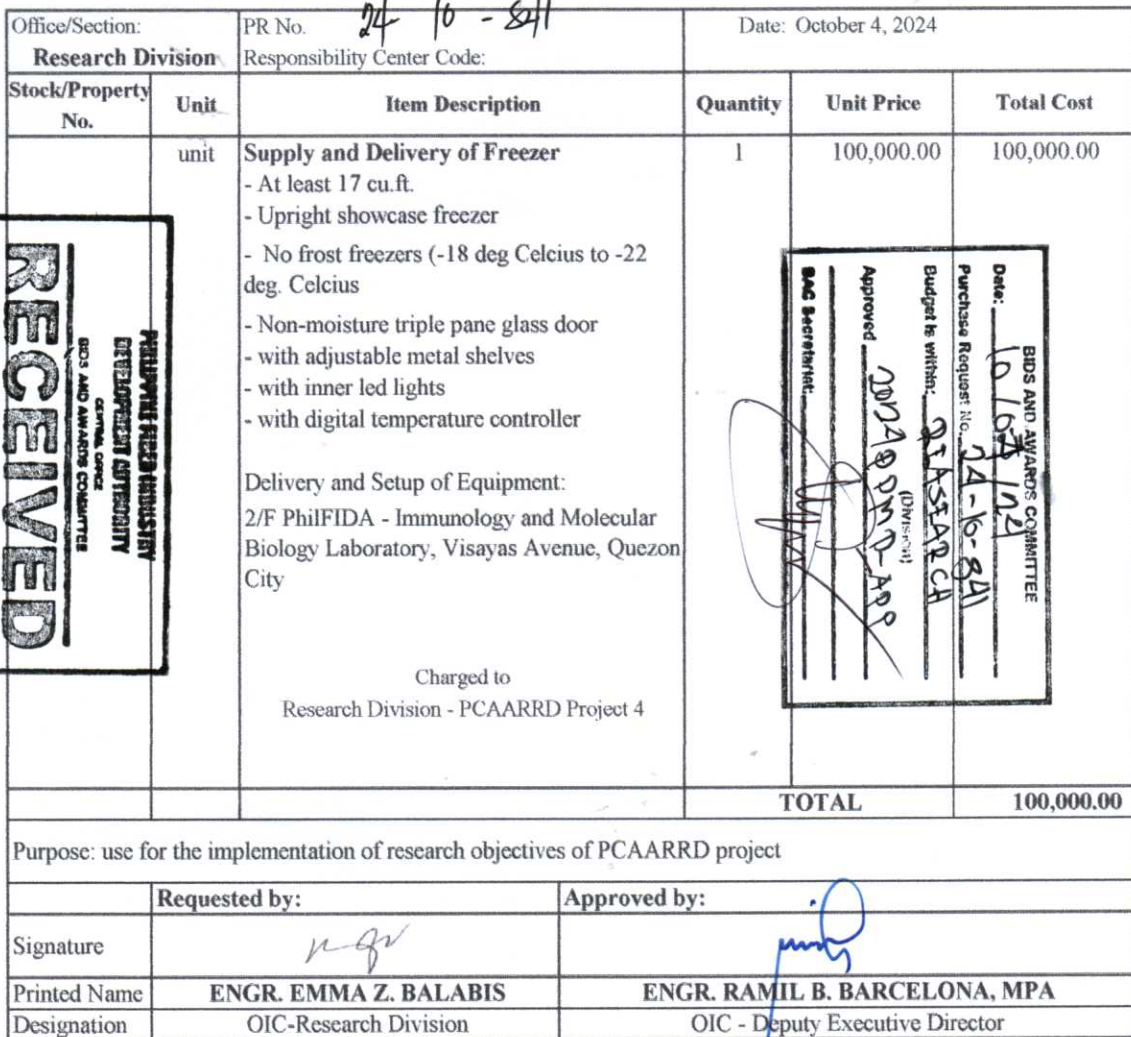 Office/Section:
Research Division
PR No. 24-10-841
Responsibility Center Code:
Date: October 4, 2024
Stock/Property No.
Unit
Item Description
Quantity
Unit Price
Total Cost
unit
Supply and Delivery of Freezer
1
100,000.00
100,000.00
- At least 17 cu.ft.
- Upright showcase freezer
- No frost freezers (-18 deg Celcius to -22
deg. Celcius
- Non-moisture triple pane glass door
- with adjustable metal shelves
- with inner led lights
- with digital temperature controller
Delivery and Setup of Equipment:
2/F PhilFIDA - Immunology and Molecular
Biology Laboratory, Visayas Avenue, Quezon
City
Charged to
Research Division - PCAARRD Project 4
PHILIPPINE FIBER INDUSTRY
DEVELOPMENT AUTHORITY
CENTRAL OFFICE
BIDS AND AWARDS COMMITTEE
RECEIVED
BIDS AND AWARDS COMMITTEE
Date:
Purchase Request No. 24-10-841
Budget is within: RESEARCH
(Division)
Approved
BAC Secretariat:
TOTAL
100,000.00
Purpose: use for the implementation of research objectives of PCAARRD project
Requested by:
Approved by:
Signature
Printed Name
ENGR. EMMA Z. BALABIS
ENGR. RAMIL B. BARCELONA, MPA
Designation
OIC-Research Division
OIC - Deputy Executive Director